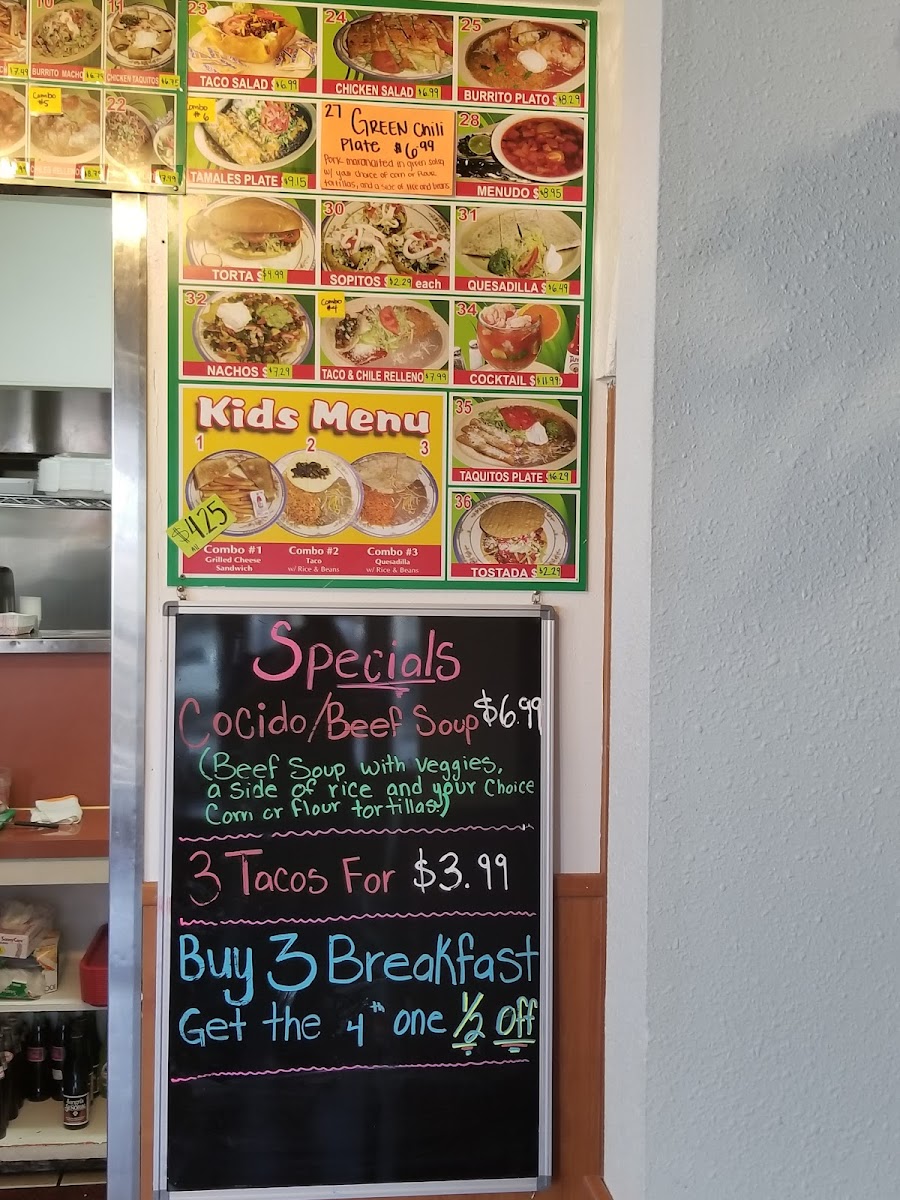 10
11
$7.99
BURRITO MACHO $6.79
CHICKEN TAQUITOS $6.75
Combo
#5
22
$7.49
23
TACO SALAD $6.99
24
CHICKEN SALAD $6.99
25
BURRITO PLATO $8.29
Combo
#6
TAMALES PLATE $9.15
27 GREEN Chili
Plate $6.99
Pork maranaited in green salsa
w/ your choice of corn or flour
tortillas, and a side of rice and beans
28
MENUDO $8.95
TORTA $4.99
30
SOPITOS $2.29 each
31
QUESADILLA $6.49
32
NACHOS $7.29
Combo
#4
TACO & CHILE RELLENO $7.99
34
COCKTAIL $11.99
Kids Menu
1 2 3
$4.25
All
Combo #1
Grilled Cheese
Sandwich
Combo #2
Taco
w/ Rice & Beans
Combo #3
Quesadilla
w/ Rice & Beans
35
TAQUITOS PLATE $6.29
36
TOSTADA $2.29
Specials
Cocido/Beef Soup $6.99
(Beef Soup with Veggies,
a side of rice and your Choice
Corn or flour tortillas.)
3 Tacos For $3.99
Buy 3 Breakfast
Get the 4th one 1/2 Off